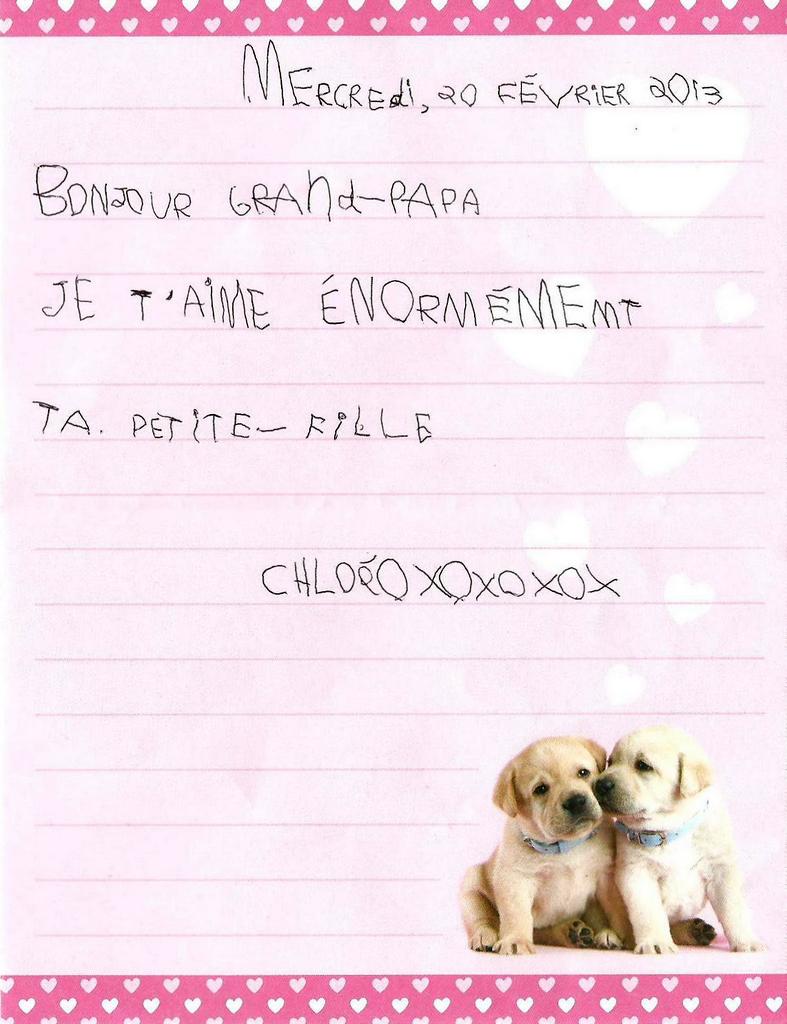 MERCREdi, 20 FÉVRiER 2013
BONJOUR GRANd-PAPA
JE T'AiME ÉNORMÉMENT
TA. PETiTE-FiLLE
CHLOÉOXOXOXOX